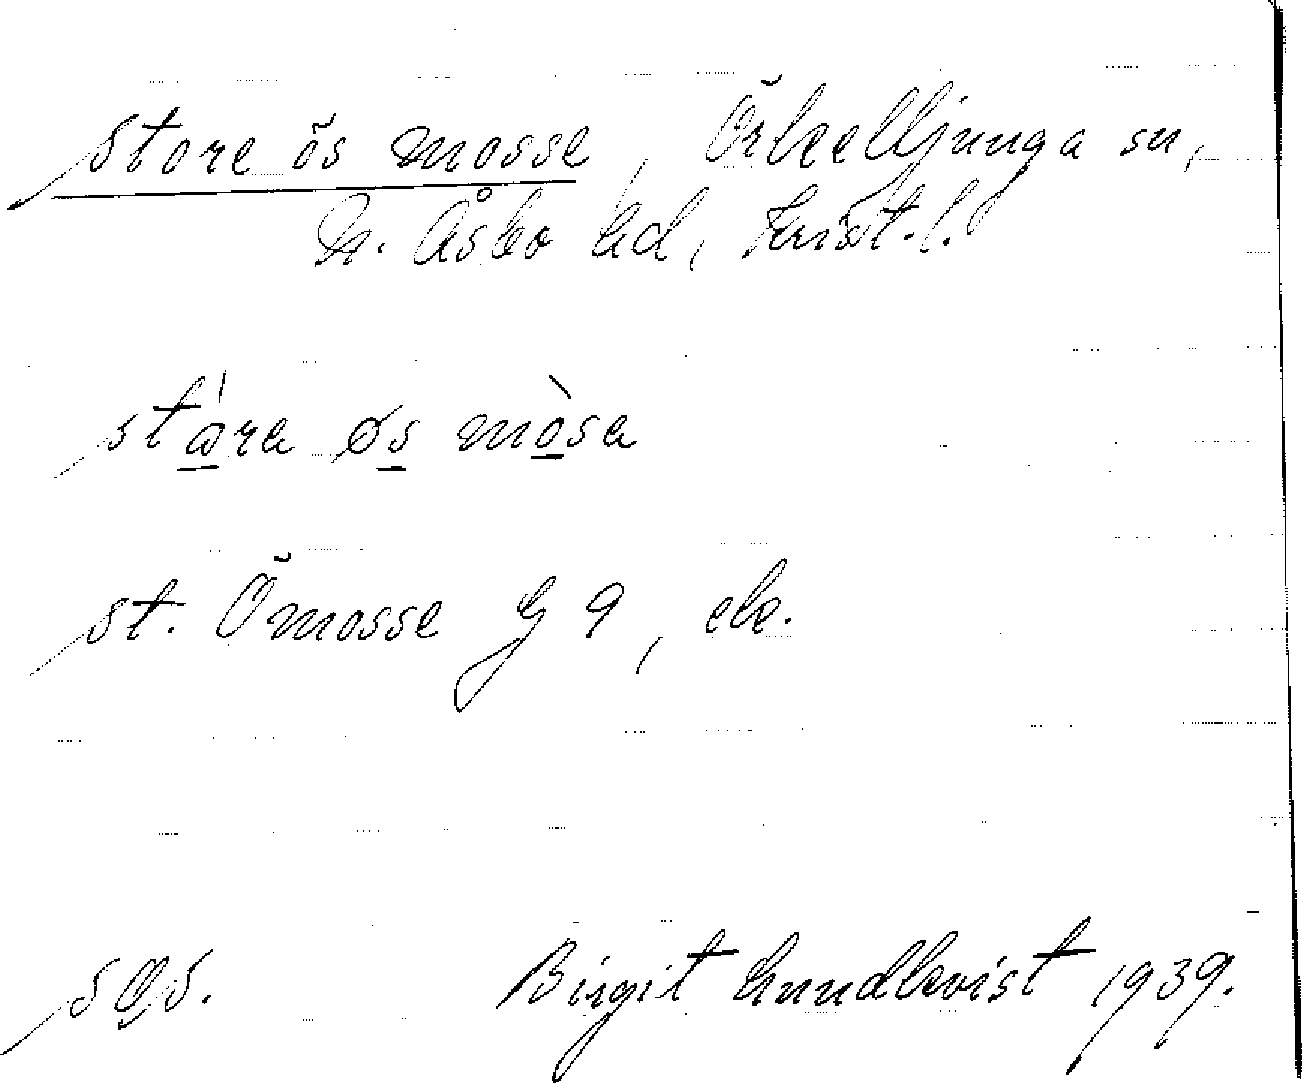 Store ös mosse, Örkelljunga sn,
N. Åsbo hd, Krist. l.
stɑ́ra øs mòsa
St. Ömosse G 9, ek.
Birgit Lundkvist 1939.